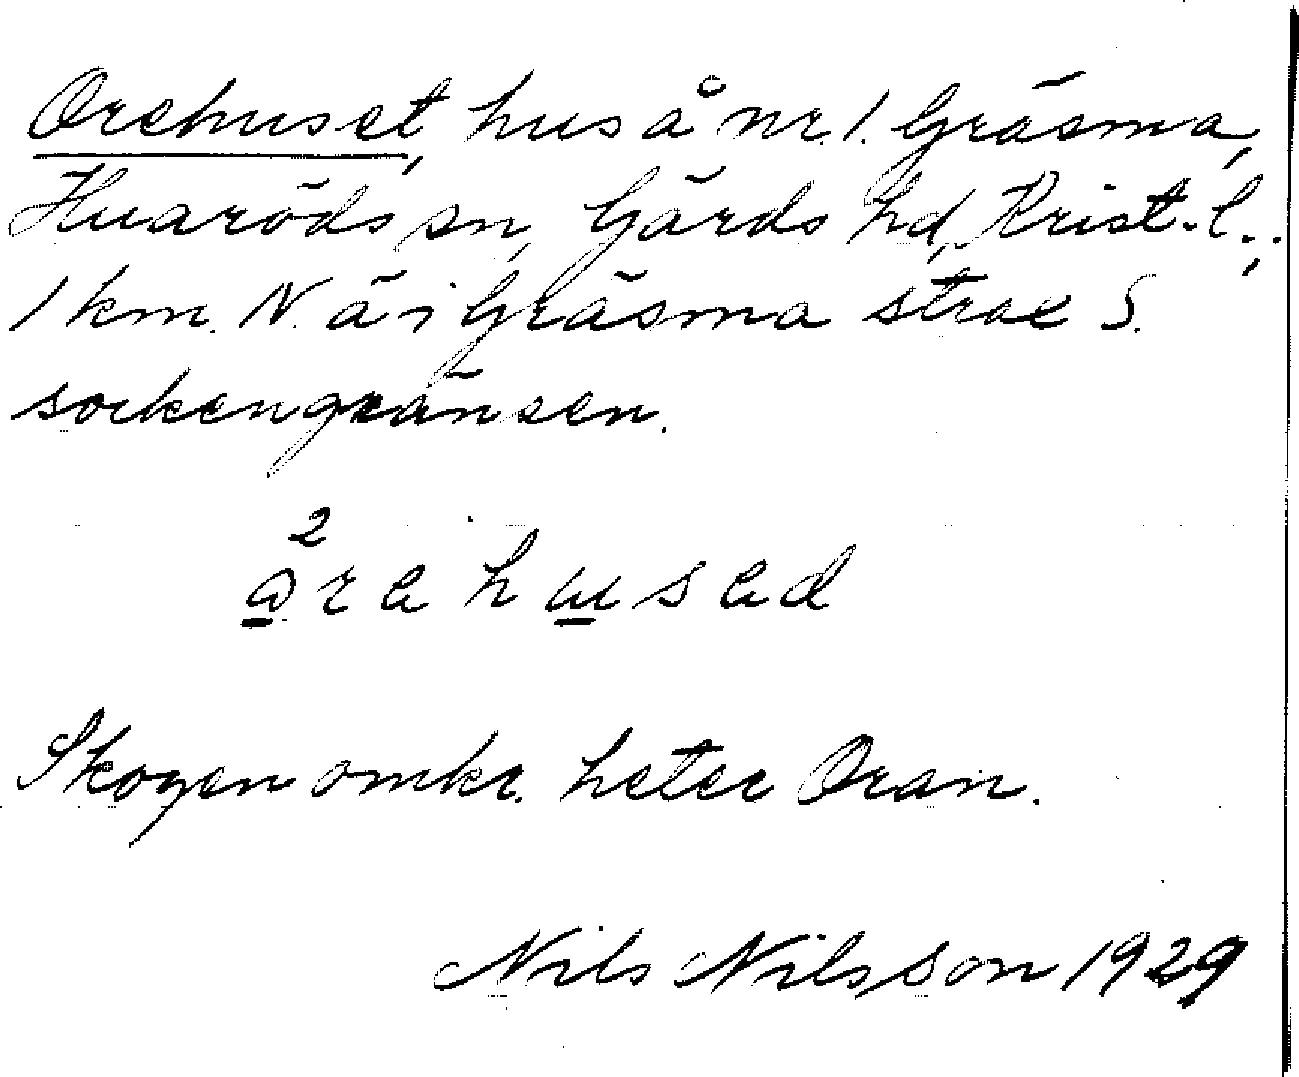 Orehuset, hus å nr. 1. Gräsma,
Huaröds sn, Gärds hd, Krist. l.;
1 km. N. ä i Gräsma strax S.
sockengränsen.
2
å r e h u s e d
Skogen omkr. heter Oran.
Nils Nilsson 1929